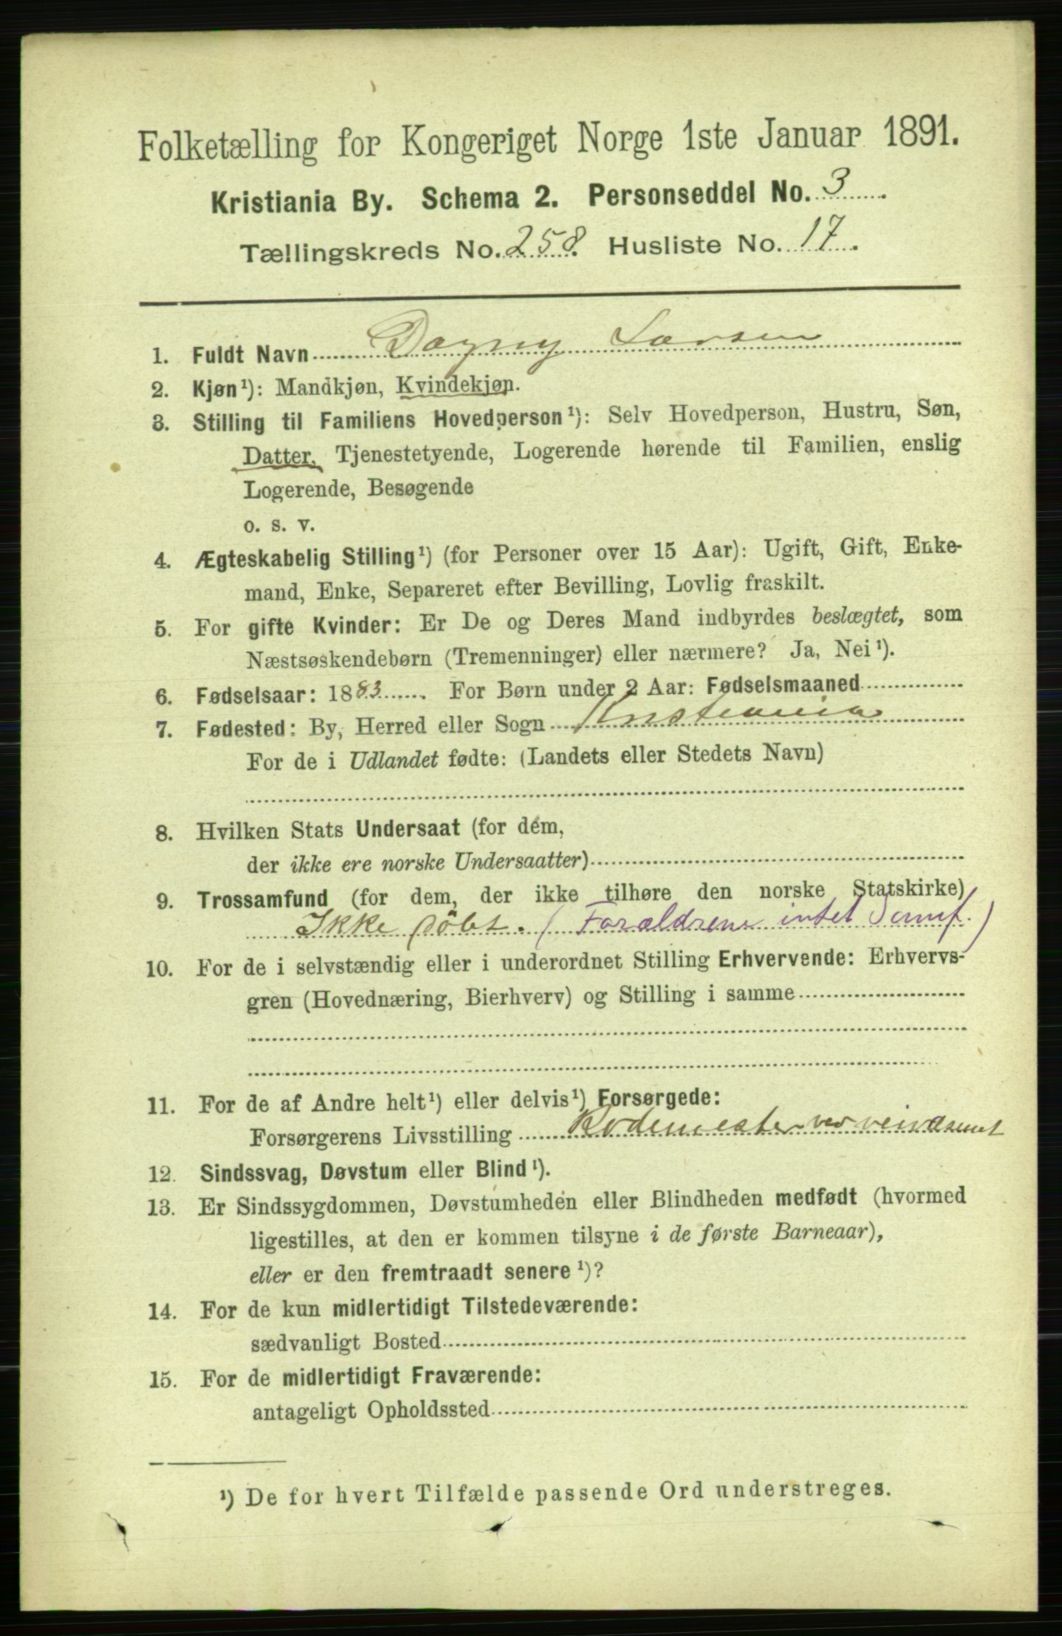 Folketælling for Kongeriget Norge 1ste Januar 1891.
Kristiania By. Schema 2. Personseddel No. 3.
Tællingskreds No. 258. Husliste No. 17.
1. Fuldt Navn Dagny Larsen
2. Kjøn¹): Mandkjøn, Kvindekjøn.
3. Stilling til Familiens Hovedperson¹): Selv Hovedperson, Hustru, Søn,
Datter, Tjenestetyende, Logerende hørende til Familien, enslig
Logerende, Besøgende
o. s. v.
4. Ægteskabelig Stilling¹) (for Personer over 15 Aar): Ugift, Gift, Enke-
mand, Enke, Separeret efter Bevilling, Lovlig fraskilt.
5. For gifte Kvinder: Er De og Deres Mand indbyrdes beslægtet, som
Næstsøskendebørn (Tremenninger) eller nærmere? Ja, Nei¹).
6. Fødselsaar: 1883. For Børn under 2 Aar: Fødselsmaaned
7. Fødested: By, Herred eller Sogn Kristiania
For de i Udlandet fødte: (Landets eller Stedets Navn)
8. Hvilken Stats Undersaat (for dem,
der ikke ere norske Undersaatter)
9. Trossamfund (for dem, der ikke tilhøre den norske Statskirke)
Ikke døbt. (Forældrene intet Samf.)
10. For de i selvstændig eller i underordnet Stilling Erhvervende: Erhvervs-
gren (Hovednæring, Bierhverv) og Stilling i samme
11. For de af Andre helt¹) eller delvis¹) Forsørgede:
Forsørgerens Livsstilling Rodemester ved veivæsenet
12. Sindssvag, Døvstum eller Blind¹).
13. Er Sindssygdommen, Døvstumheden eller Blindheden medfødt (hvormed
ligestilles, at den er kommen tilsyne i de første Barneaar),
eller er den fremtraadt senere¹)?
14. For de kun midlertidigt Tilstedeværende:
sædvanligt Bosted
15. For de midlertidigt Fraværende:
antageligt Opholdssted
¹) De for hvert Tilfælde passende Ord understreges.